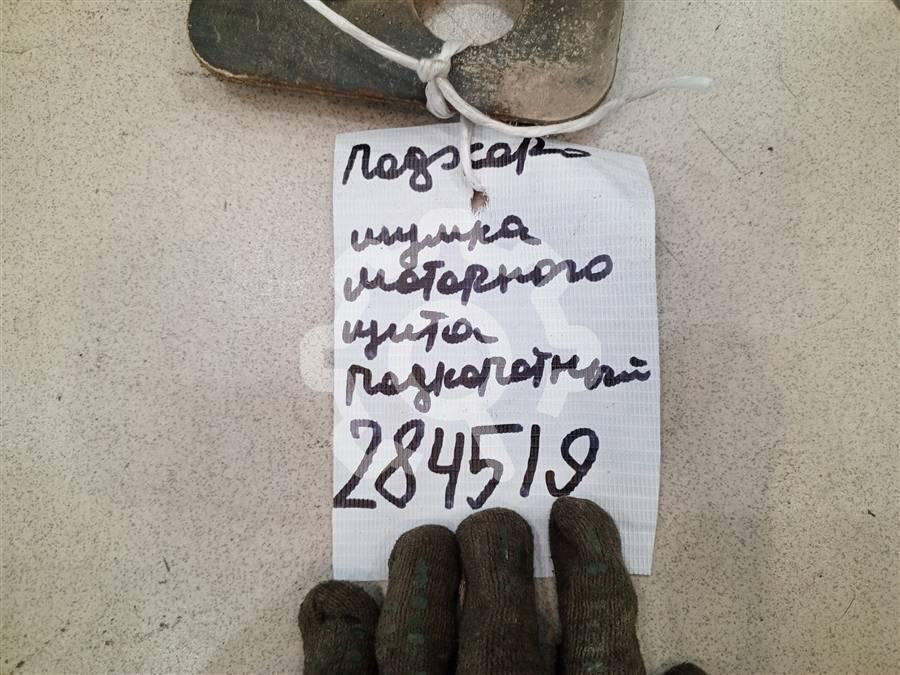 Паджеро
шумка
моторного
щита
подкапотный
284519